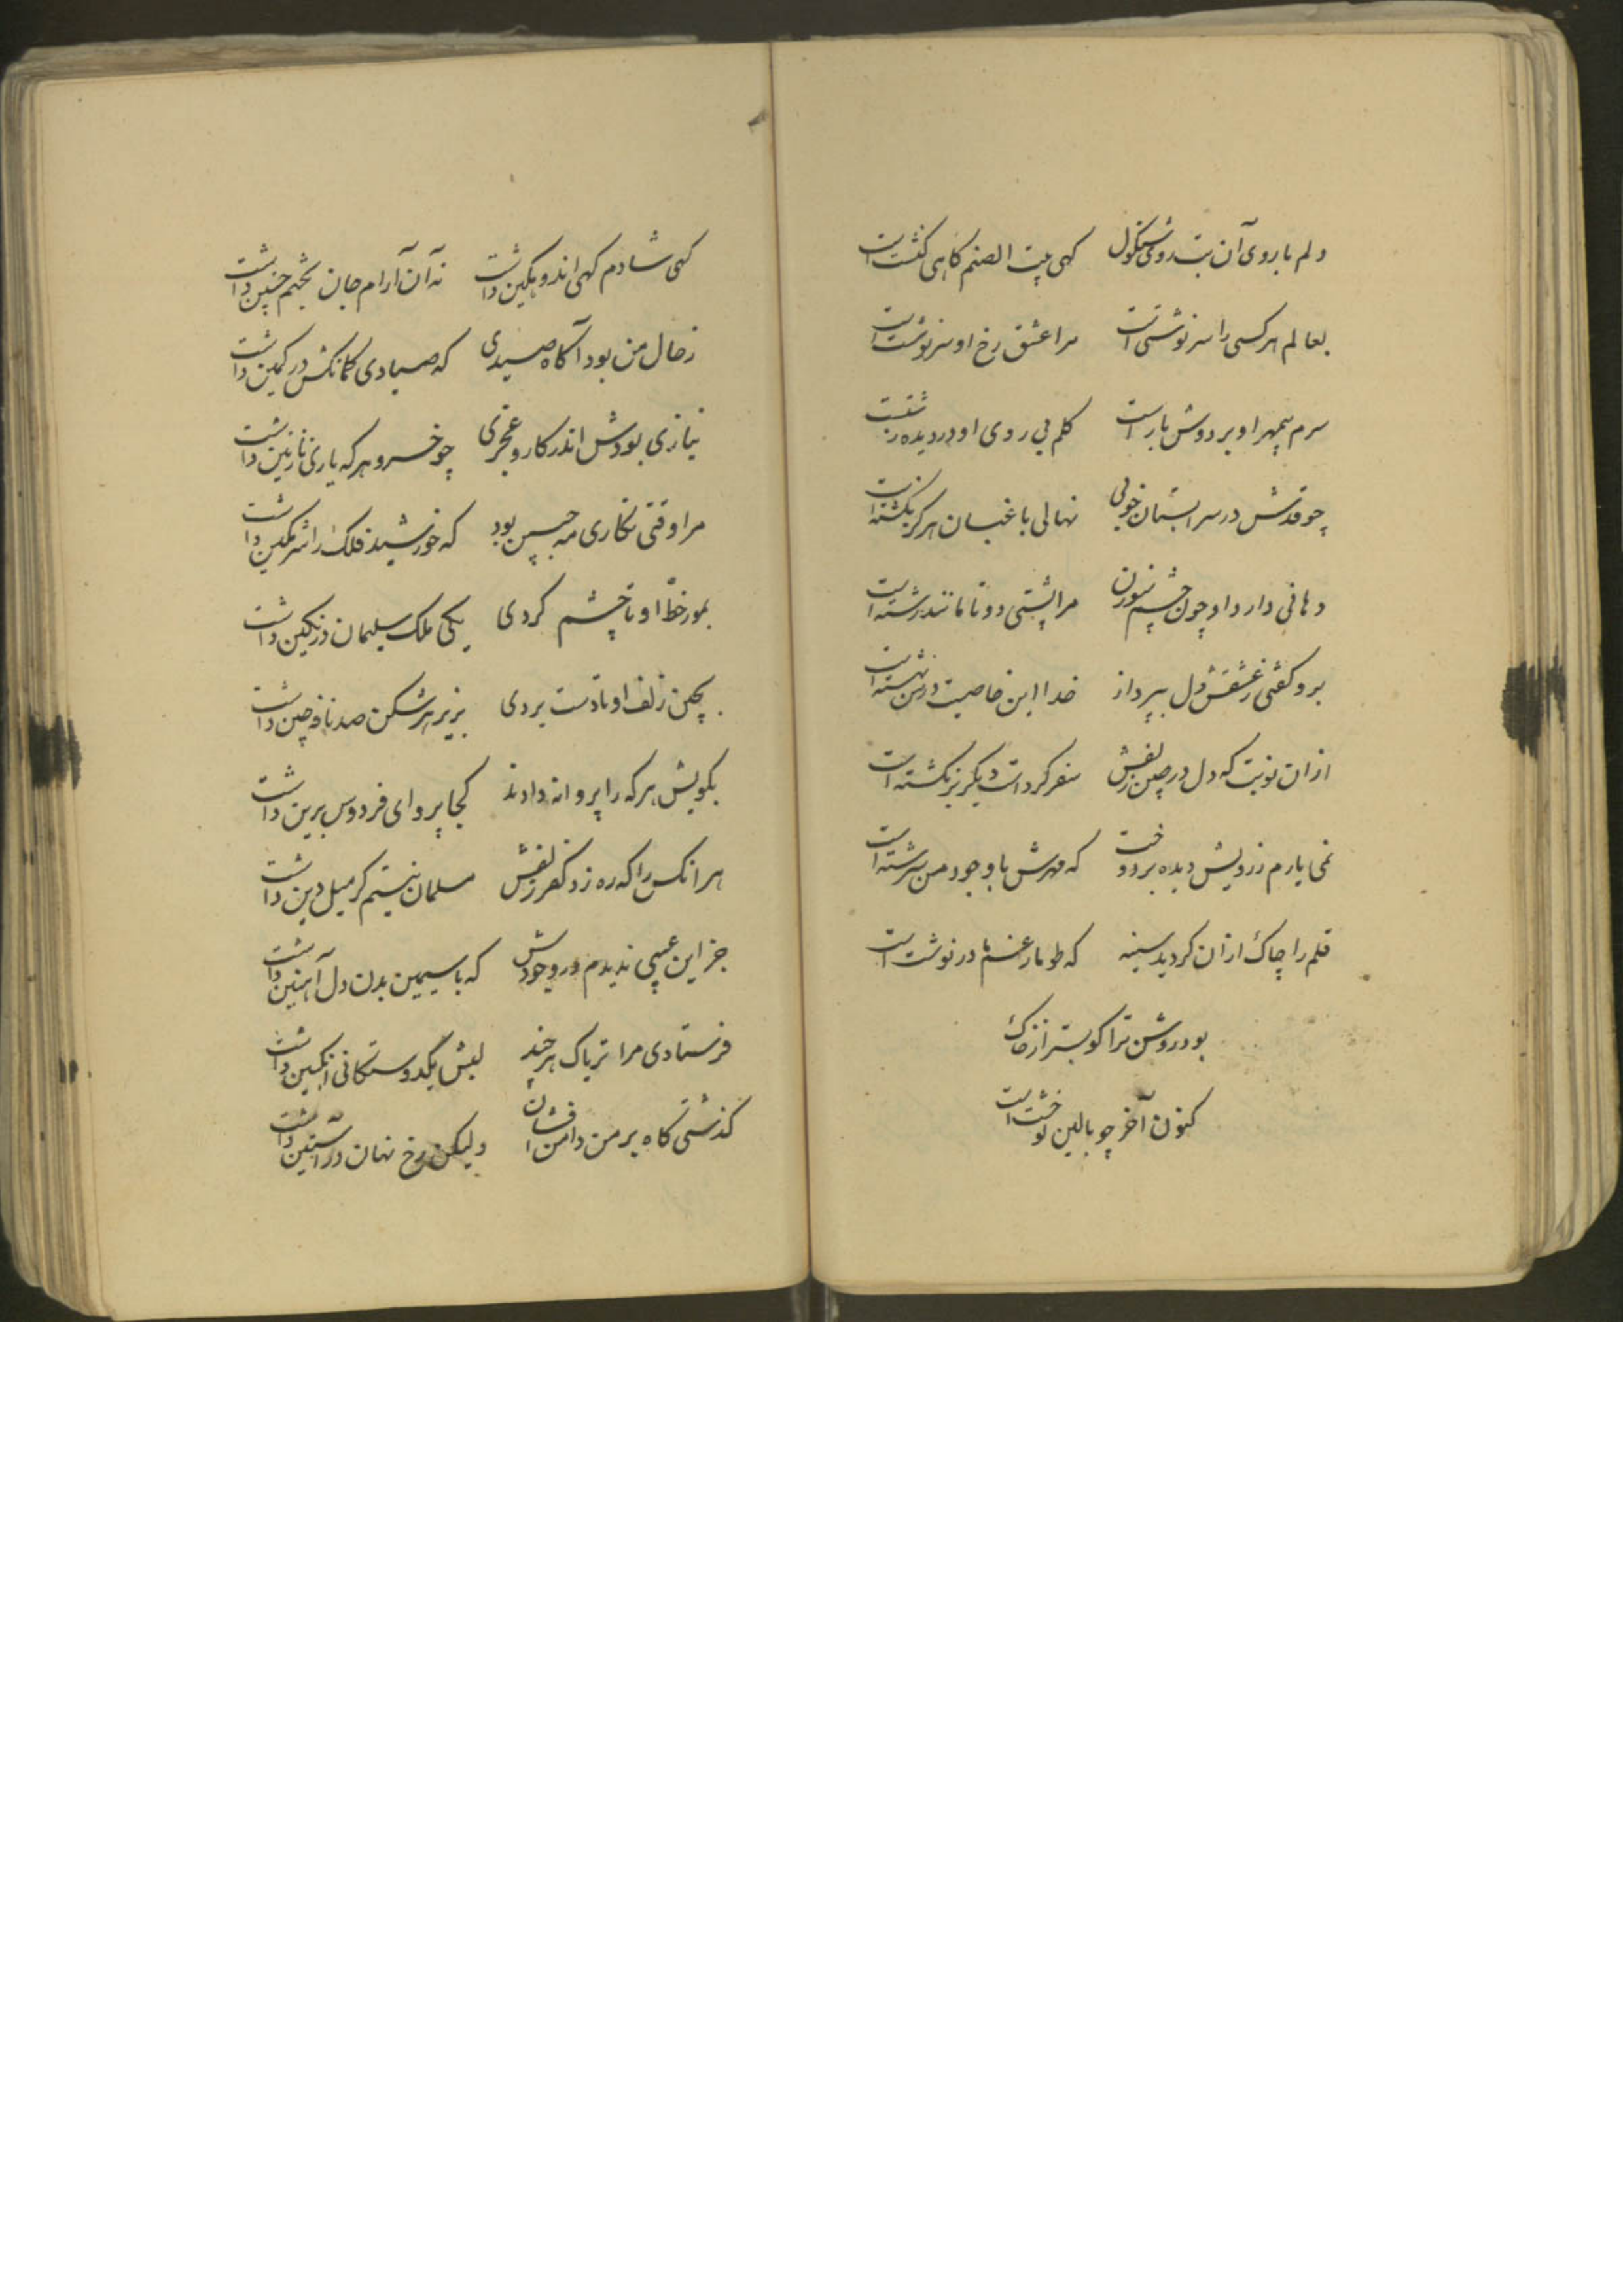 دلم با روی آن بت روی شنگول کهی بیت الصنم کاهی کنشت است
بعالم هر کسی را سرنوشتی است مرا عشق رخ او سرنوشت است
سرم بیمهر او بر دوش بار است کلم بی روی او در دیده زشت است
چو قدش در سرابستان خوبی نهالی باغبان هرکز نکشته است
دهانی دارد او چون چشم سوزن مرا پشتی دو تا مانند رشته است
برو کفتی ز عشقش دل بپرداز خدا این خاصیت در من نهشته است
از ان نوبت که دل در چین زلفش سفر کرد است دیکر بر نکشته است
نمی یارم ز رویش دیده بر دوخت که مهرش با وجود من سرشته است
قلم را چاک از ان کردید سینه که طومار غم ما در نوشت است
بود روشن ترا کو بستر از خاک
کنون آخر چو بالین تو خشت است
کهی شادم کهی اندوهکین داشت نه آن آرام جان بختم چنین داشت
ز حال من بود آکاه صیدی که صیادی کمانکش در کمین داشت
نیازی بودش اندر کار و عجزی چو خسرو هر که یاری نازنین داشت
مرا وقتی نکاری مه جبین بود که خورشید فلک را شرمکین داشت
بمور خط او تا چشم کردی یکی ملک سلیمان در نکین داشت
بچین زلف او تا دست بردی بزیر هر شکن صد نافه چین داشت
بکویش هر که را پروانه دادند کجا پروای فردوس برین داشت
هر انکس را که ره زد کفر زلفش مسلمان نیستم کر میل دین داشت
جز این عیبی ندیدم در وجودش که با سیمین بدن دل آهنین داشت
فرستادی مرا تریاک هر چند لبش یکدوستکانی انکبین داشت
کذشتی کاه بر من دامن افشان ولیکن رخ نهان در آستین داشت